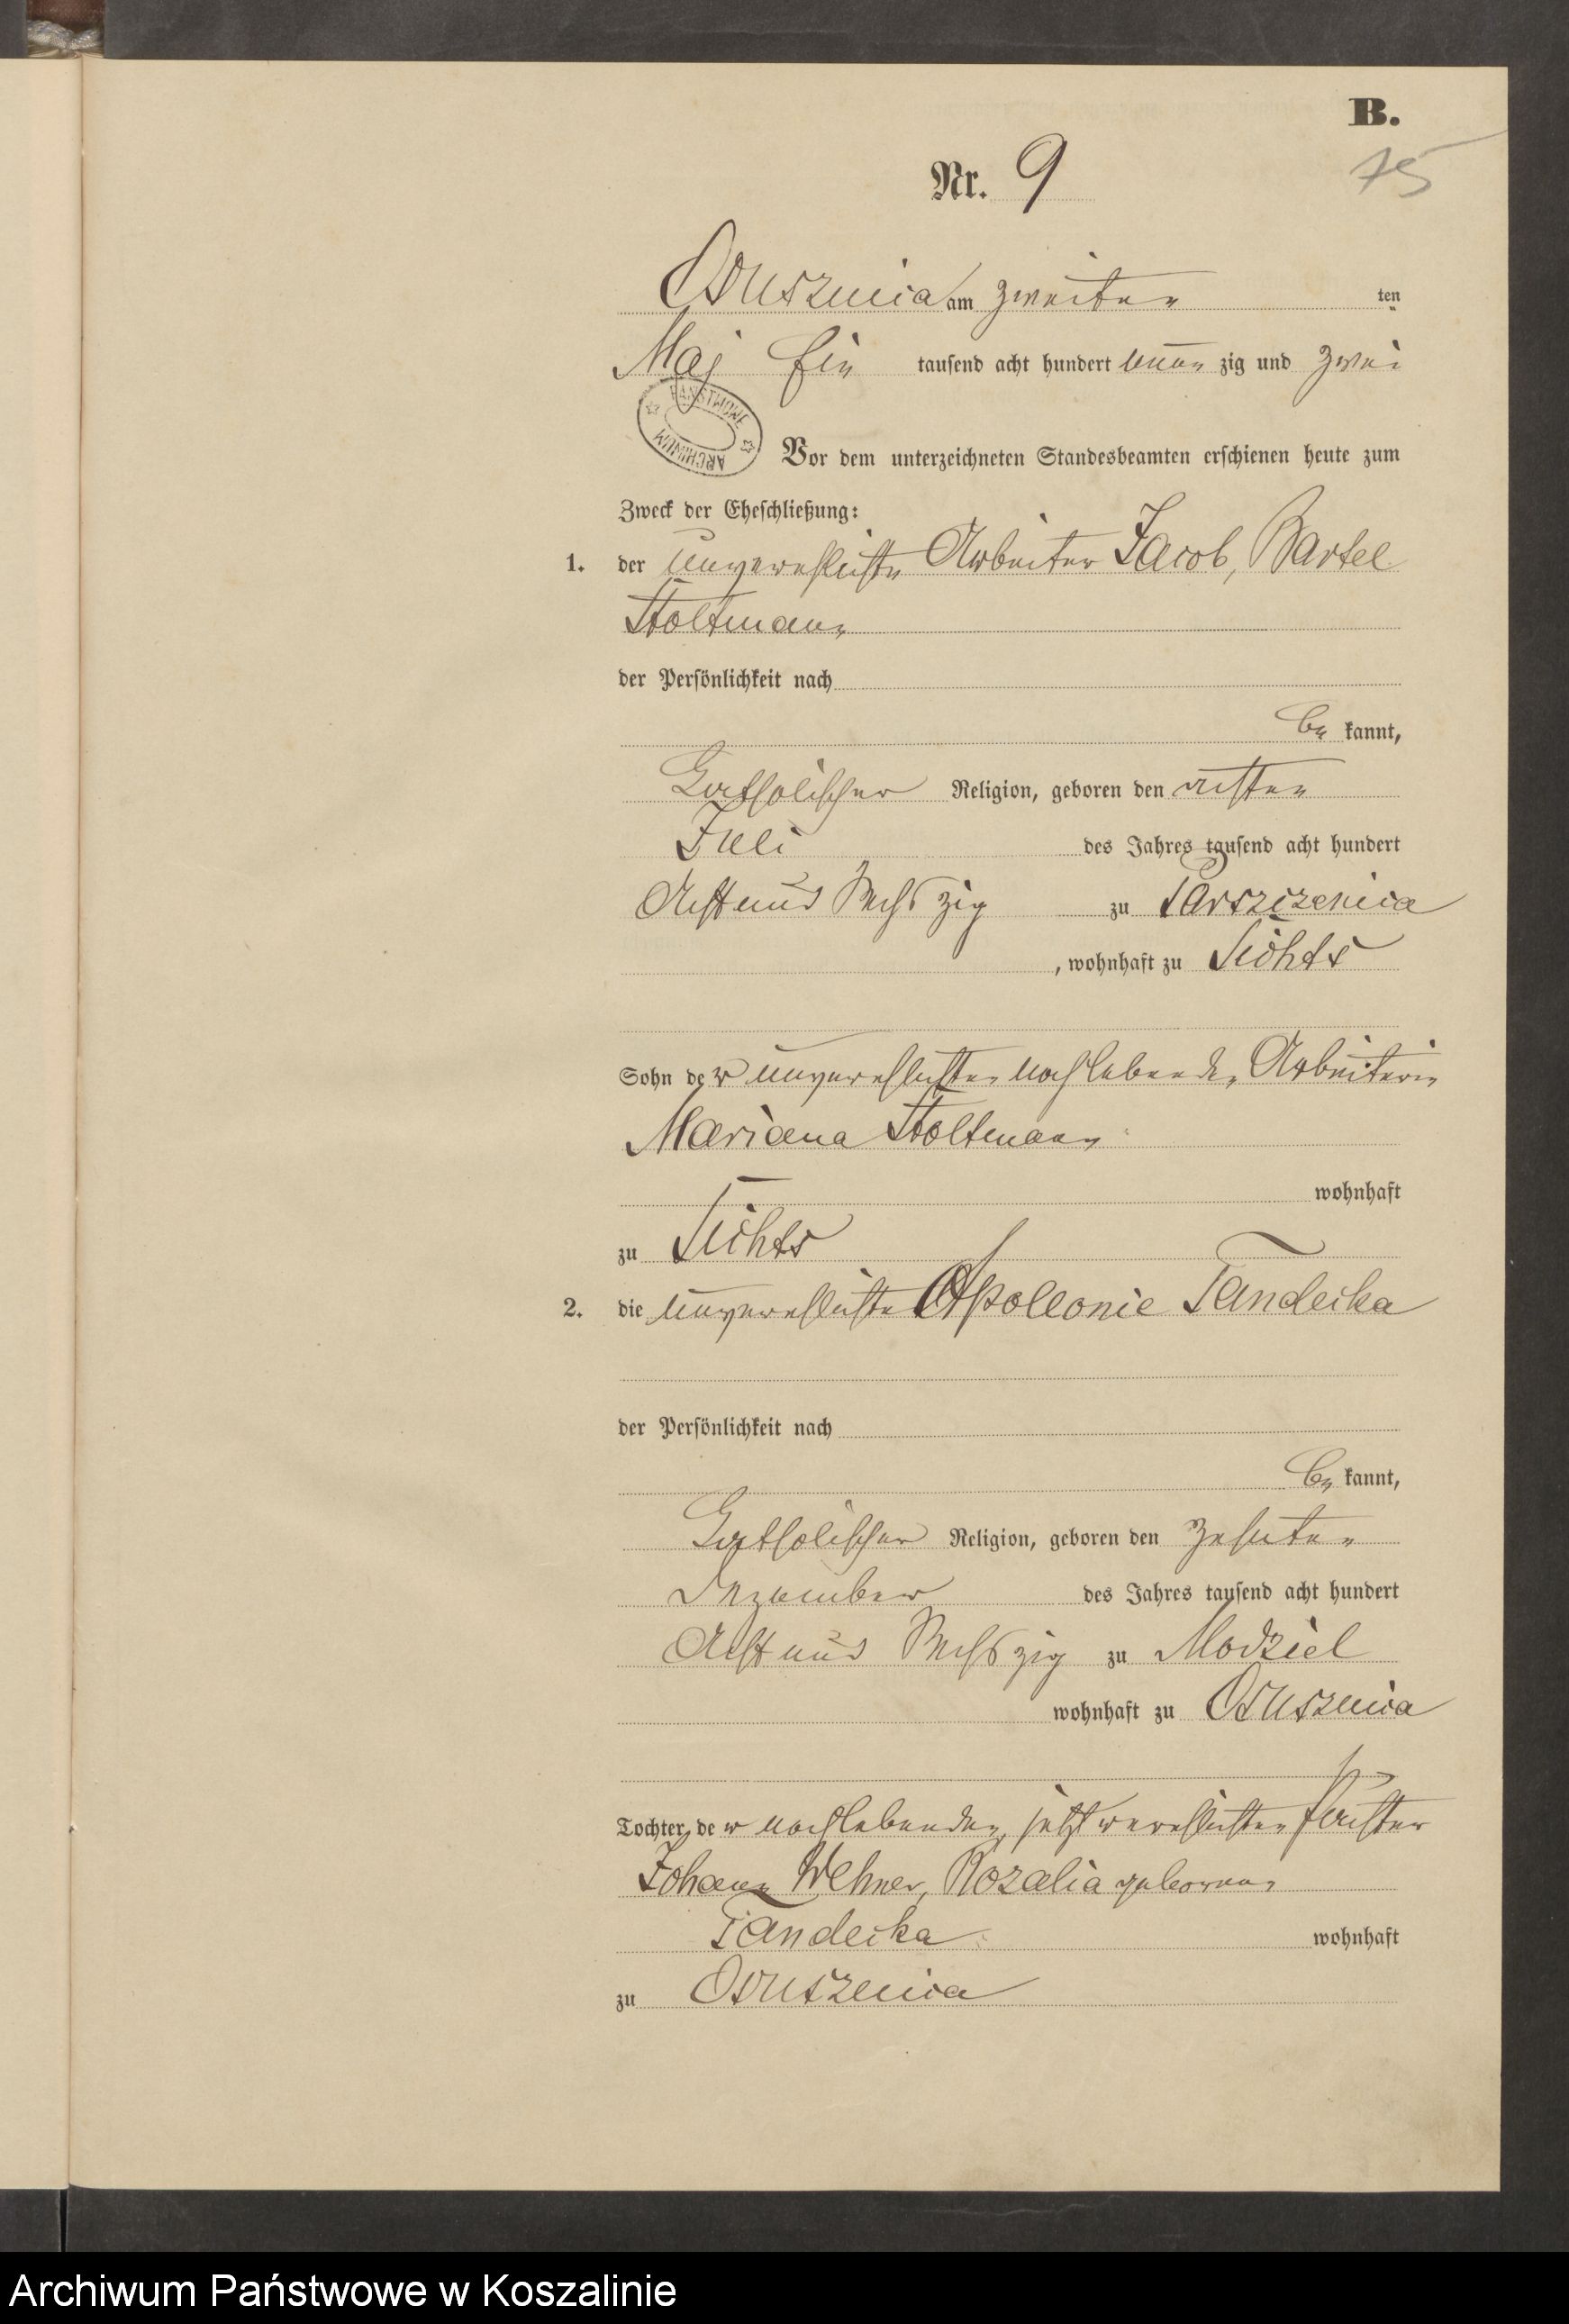 B.
75
Nr. 9
Osusznica am zweiten ten
Maj Ein tausend acht hundert neun zig und zwei
PAŃSTWOWE ARCHIWUM
Vor dem unterzeichneten Standesbeamten erschienen heute zum
Zweck der Eheschließung:
1. der unverehlichte Arbeiter Jacob, Bartel
Stoltmann
der Persönlichkeit nach
be kannt,
Katholischer Religion, geboren den achten
Juli des Jahres tausend acht hundert
Acht und Sechs zig zu Parszczenica
, wohnhaft zu Lichts
Sohn der unverehlichten noch lebenden Arbeiterin
Mariana Stoltmann
wohnhaft
zu Lichts
2. die unverehlichte Apollonie Tandecka
der Persönlichkeit nach
be kannt,
Katholischer Religion, geboren den zehnten
Dezember des Jahres tausend acht hundert
Acht und Sechs zig zu Modziel
wohnhaft zu Osusznica
Tochter der noch lebenden, jetzt verehlichten Pächter
Johann Wehner, Rozalia geborenen
Tandecka wohnhaft
zu Osusznica
Archiwum Państwowe w Koszalinie